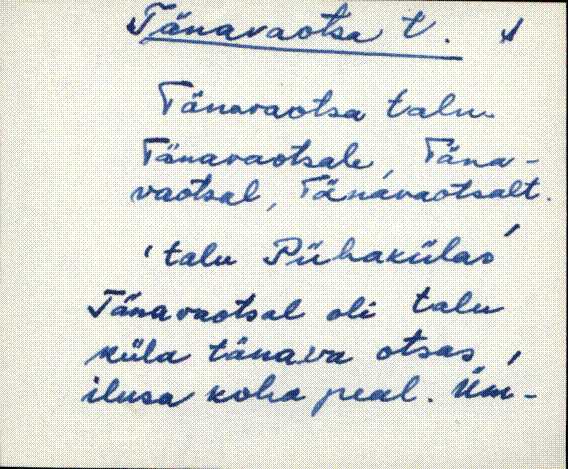 Tänavaotsa t.
Tänavaotsa talu
Tänavaotsale, Täna-
vaotsal, Tänavaotsalt.
'talu Pühakülas'
Tänavaotsal oli talu
küla tänava otsas,
ilusa koha peal. Üm-